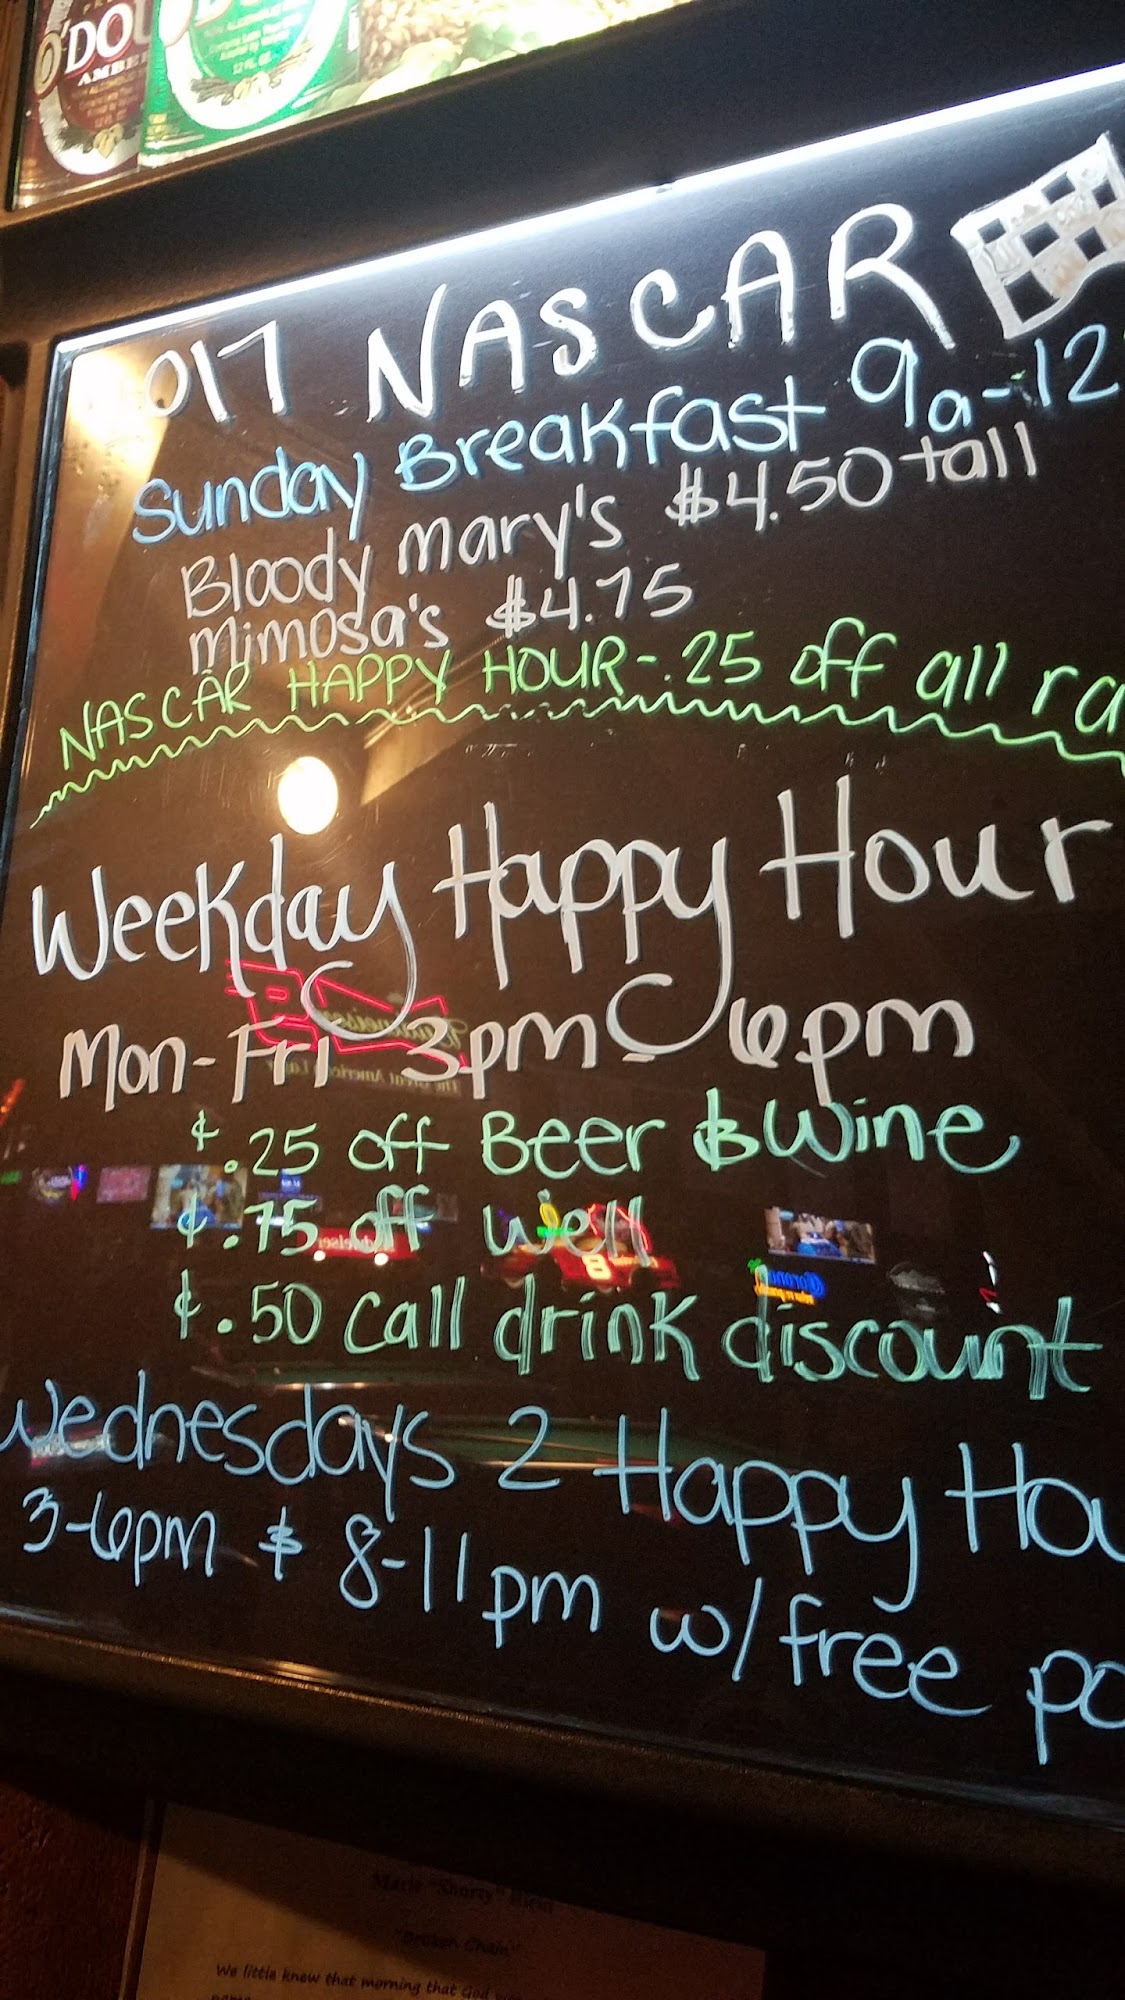 O'DOU
AMBE
12 FL. OZ.
017 NASCAR
Sunday Breakfast 9a-12
Bloody Mary's $4.50 tall
Mimosa's $4.75
NASCAR HAPPY HOUR-.25 off all ra
Weekday Happy Hour
Mon-Fri 3pm-6pm
¢.25 off Beer & Wine
¢.75 off well
¢.50 call drink discount
Wednesdays 2 Happy Hou
3-6pm & 8-11pm w/ free po
"Broken Chain"
We little knew that morning that God